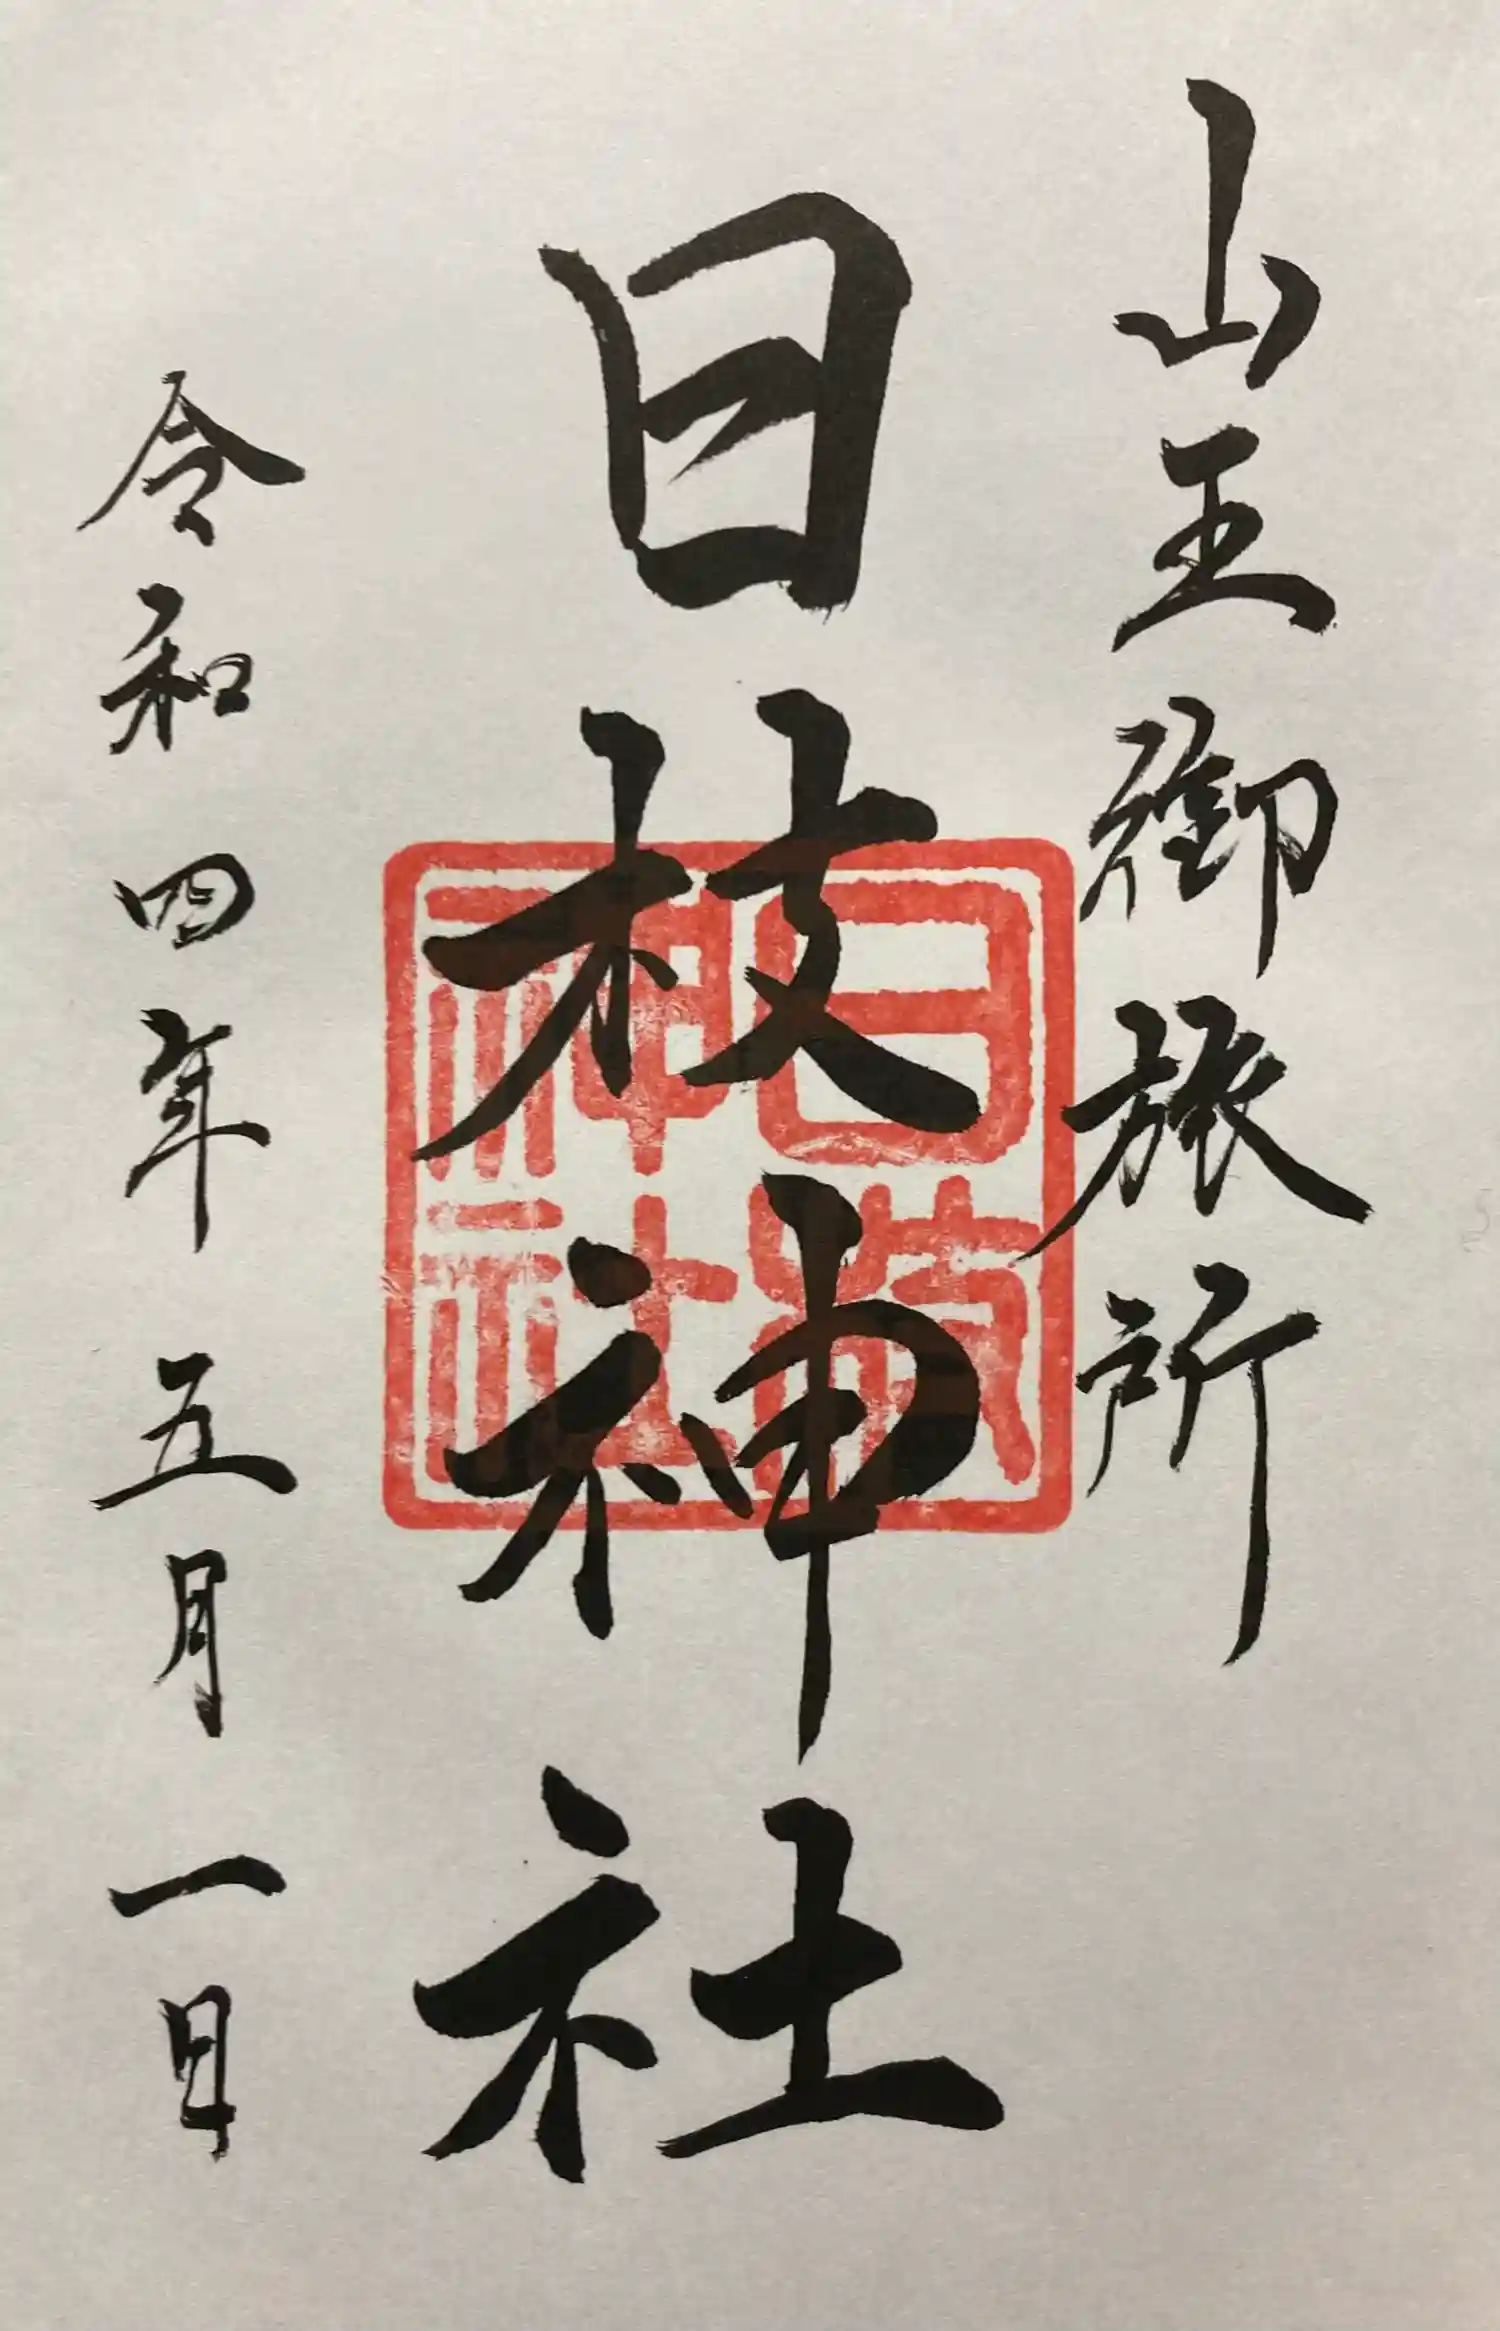 山王御旅所
日枝神社
日枝
神社
令和四年五月一日